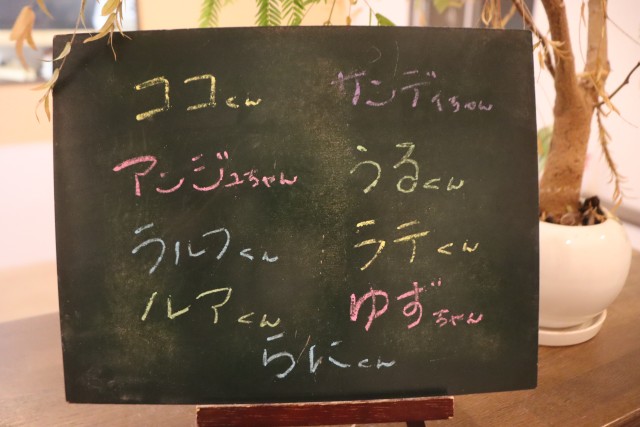 ココくん サンディちゃん
アンジュちゃん うるくん
ラルフくん ラテくん
ルアくん ゆずちゃん
らにくん